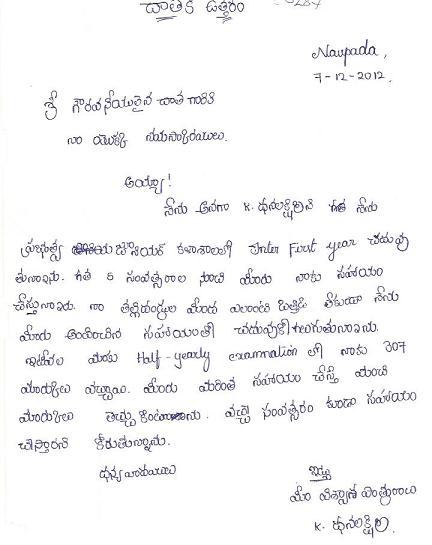 దాతకి ఉత్తరం
Naupada,
7-12-2012.
శ్రీ గౌరవనీయులైన దాత గారికి
నా యొక్క నమస్కారములు.
అయ్యా!
నేను అనగా K. ధనలక్ష్మి నేను
ప్రభుత్వ జూనియర్ కళాశాలలో Inter First year చదువు
తున్నాను. గత 5 సంవత్సరాల నుంచి మీరు నాకు సహాయం
చేస్తున్నారు. నా తల్లిదండ్రుల మీద ఎలాంటి ఒత్తిడి లేకుండా నేను
మీరు అందించిన సహాయంతో చదువుకోగలుగుతున్నాను.
ఇటీవల మాకు Half-yearly examination లో నాకు 307
మార్కులు వచ్చాయి. మీరు మరింత సహాయం చేస్తే మంచి
మార్కులు తెచ్చుకుంటాను. వచ్చే సంవత్సరం కూడా సహాయం
చేస్తారని కోరుతున్నాను.
ధన్యవాదములు
ఇట్లు
మీ విశ్వాస పాత్రురాలు
K. ధనలక్ష్మి